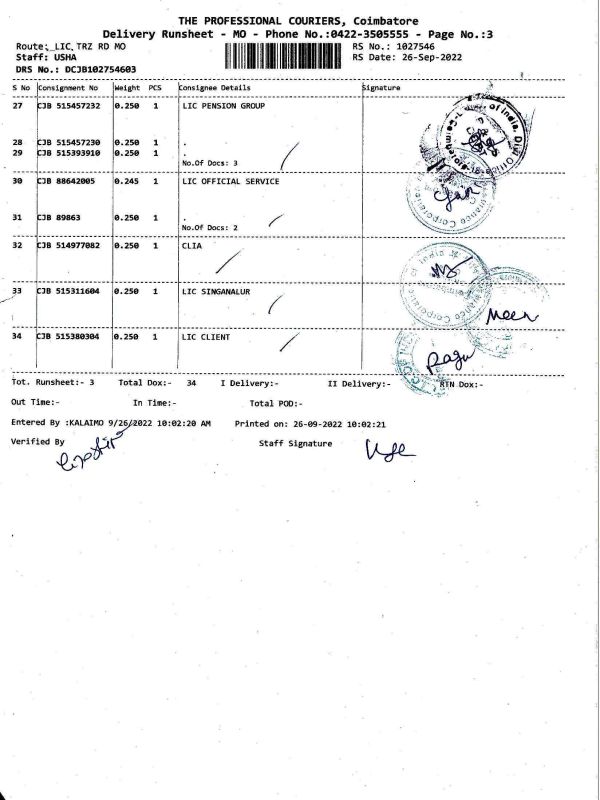 THE PROFESSIONAL COURIERS, Coimbatore
Delivery Runsheet - MO - Phone No.:0422-3505555 - Page No.:3
Route: LIC TRZ RD MO RS No.: 1027546
Staff: USHA RS Date: 26-Sep-2022
DRS No.: DCJB102754603
S No Consignment No Weight PCS Consignee Details Signature
27 CJB 515457232 0.250 1 LIC PENSION GROUP
28 CJB 515457230 0.250 1 .
29 CJB 515393910 0.250 1 .
No.Of Docs: 3
30 CJB 88642005 0.245 1 LIC OFFICIAL SERVICE
31 CJB 89863 0.250 1 .
No.Of Docs: 2
32 CJB 514977082 0.250 1 CLIA
33 CJB 515311604 0.250 1 LIC SINGANALUR
Meen
34 CJB 515380304 0.250 1 LIC CLIENT
Ragu
Tot. Runsheet:- 3 Total Dox:- 34 I Delivery:- II Delivery:- RTN Dox:-
Out Time:- In Time:- Total POD:-
Entered By :KALAIMO 9/26/2022 10:02:20 AM Printed on: 26-09-2022 10:02:21
Verified By Staff Signature